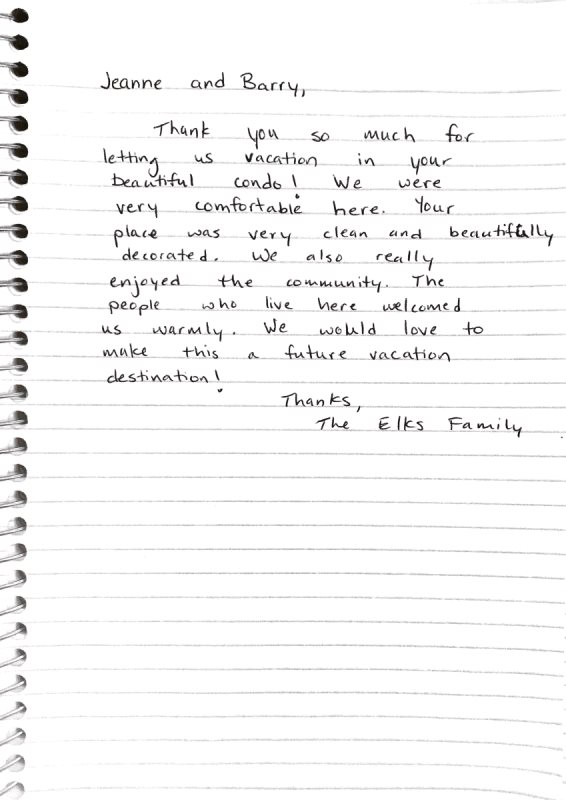 Jeanne and Barry,
Thank you so much for
letting us vacation in your
beautiful condo! We were
very comfortable here. Your
place was very clean and beautifully
decorated. We also really
enjoyed the community. The
people who live here welcomed
us warmly. We would love to
make this a future vacation
destination!
Thanks,
The Elks Family